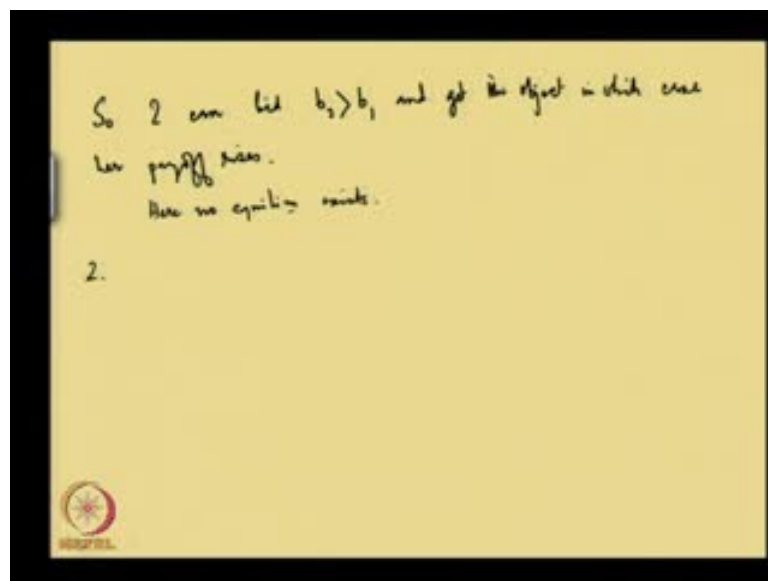 So 2 can bid b₂>b₁ and get the object in which case
her payoff rises.
Here no equilibm exists.
2.
NPTEL